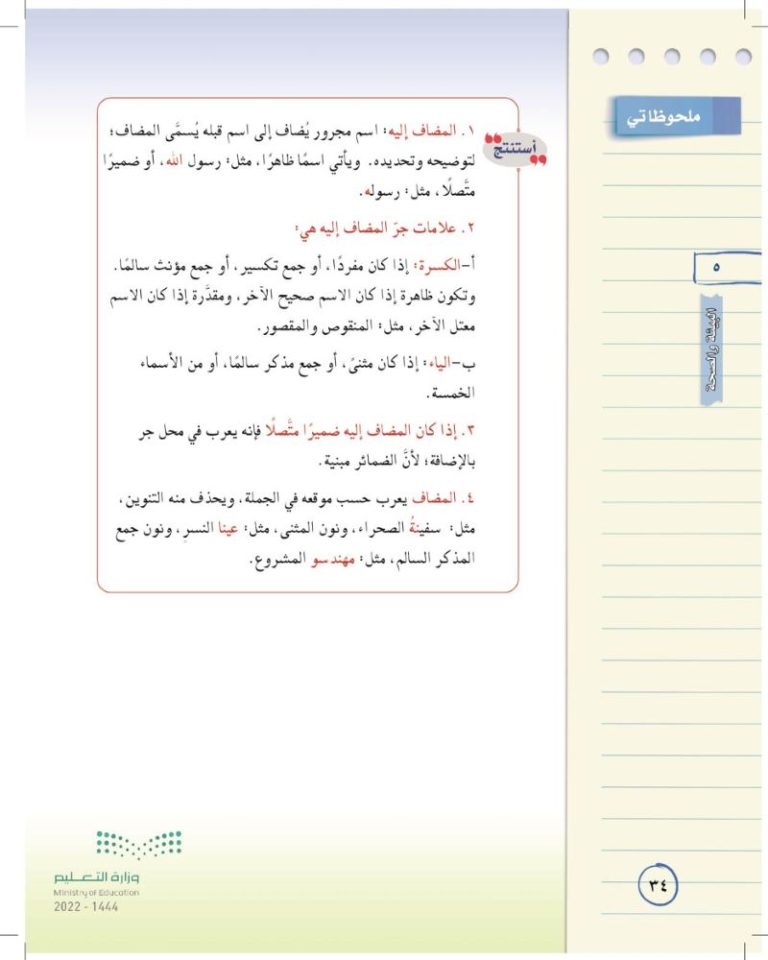 ملحوظاتي
أستنتج
١. المضاف إليه: اسم مجرور يُضاف إلى اسم قبله يُسمَّى المضاف؛
لتوضيحه وتحديده. ويأتي اسمًا ظاهرًا، مثل: رسول الله، أو ضميرًا
متَّصلًا، مثل: رسوله.
٢. علامات جرّ المضاف إليه هي:
أ-الكسرة: إذا كان مفردًا، أو جمع تكسير، أو جمع مؤنث سالمًا.
وتكون ظاهرة إذا كان الاسم صحيح الآخر، ومقدَّرة إذا كان الاسم
معتل الآخر، مثل: المنقوص والمقصور.
ب-الياء: إذا كان مثنىً، أو جمع مذكر سالمًا، أو من الأسماء
الخمسة.
٣. إذا كان المضاف إليه ضميرًا متُّصلًا فإنه يعرب في محل جر
بالإضافة؛ لأنَّ الضمائر مبنية.
٤. المضاف يعرب حسب موقعه في الجملة، ويحذف منه التنوين،
مثل: سفينةُ الصحراء، ونون المثنى، مثل: عينا النسرِ، ونون جمع
المذكر السالم، مثل: مهندسو المشروع.
٥
البيئة والصحة
٣٤
وزارة التعليم
Ministry of Education
2022 - 1444